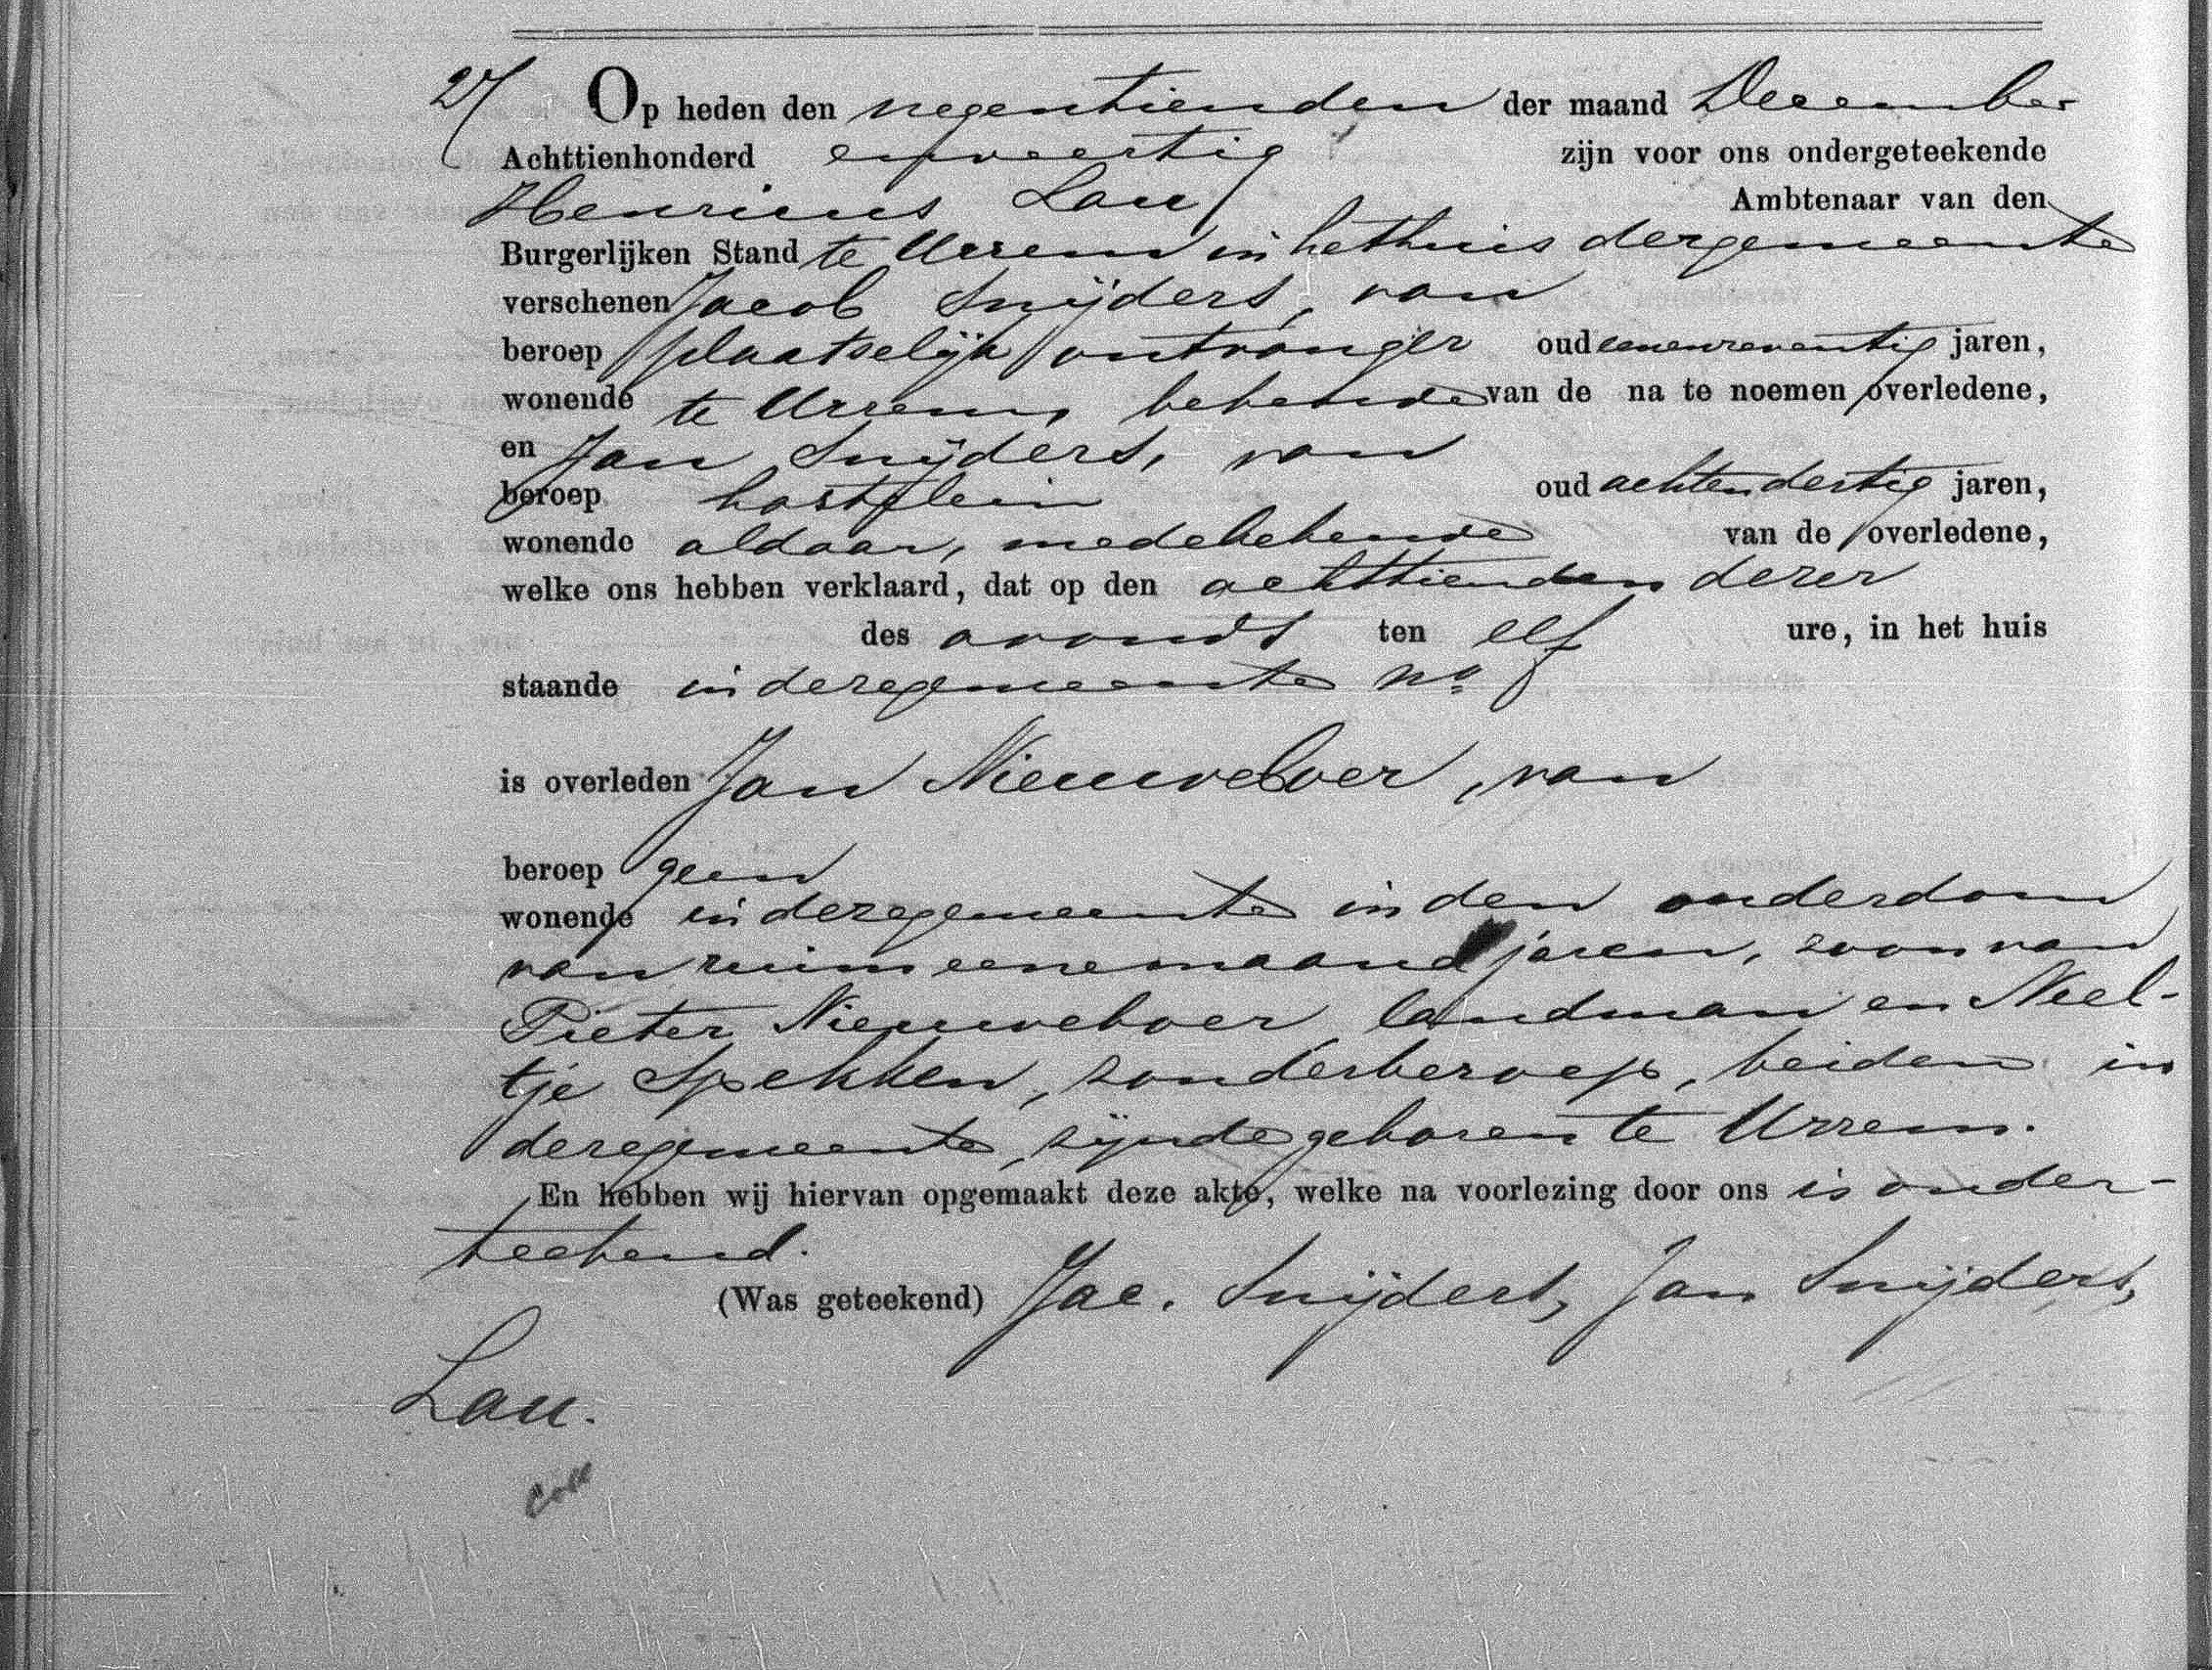 27 Op heden den negentienden der maand December
Achttienhonderd en veertig zijn voor ons ondergeteekende
Henricus Lau Ambtenaar van den
Burgerlijken Stand te Ursem in het huis der gemeente
verschenen Jacob Snijders, van
beroep plaatselijk ontvanger oud eenenzeventig jaren,
wonende te Ursem, bekende van de na te noemen overledene,
en Jan Snijders, van
beroep kastelein oud achtendertig jaren,
wonende aldaar, medebekende van de overledene,
welke ons hebben verklaard, dat op den achttienden dezer
des avonds ten elf ure, in het huis
staande in deze gemeente No
is overleden Jan Nieuweboer, van
beroep geen
wonende in deze gemeente in den ouderdom
van ruim eene maand jaren, zoon van
Pieter Nieuweboer landman en Neel-
tje Spekken, zonder beroep, beiden in
deze gemeente, zijnde geboren te Ursem.
En hebben wij hiervan opgemaakt deze akte, welke na voorlezing door ons is onder-
teekend.
(Was geteekend) Jac. Snijders, Jan Snijders,
Lau.